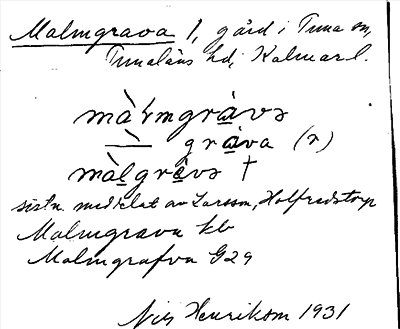 Malmgrava 1, gård i Tuna sn,
Tunaläns hd, Kalmar l.
màɬmgràvə
gràva (r)
màlgràvə †
sistn. meddelat av Larsson, Holfredstorp
Malmgrava kb
Malmgrafva G29
Nils Henrikson 1931